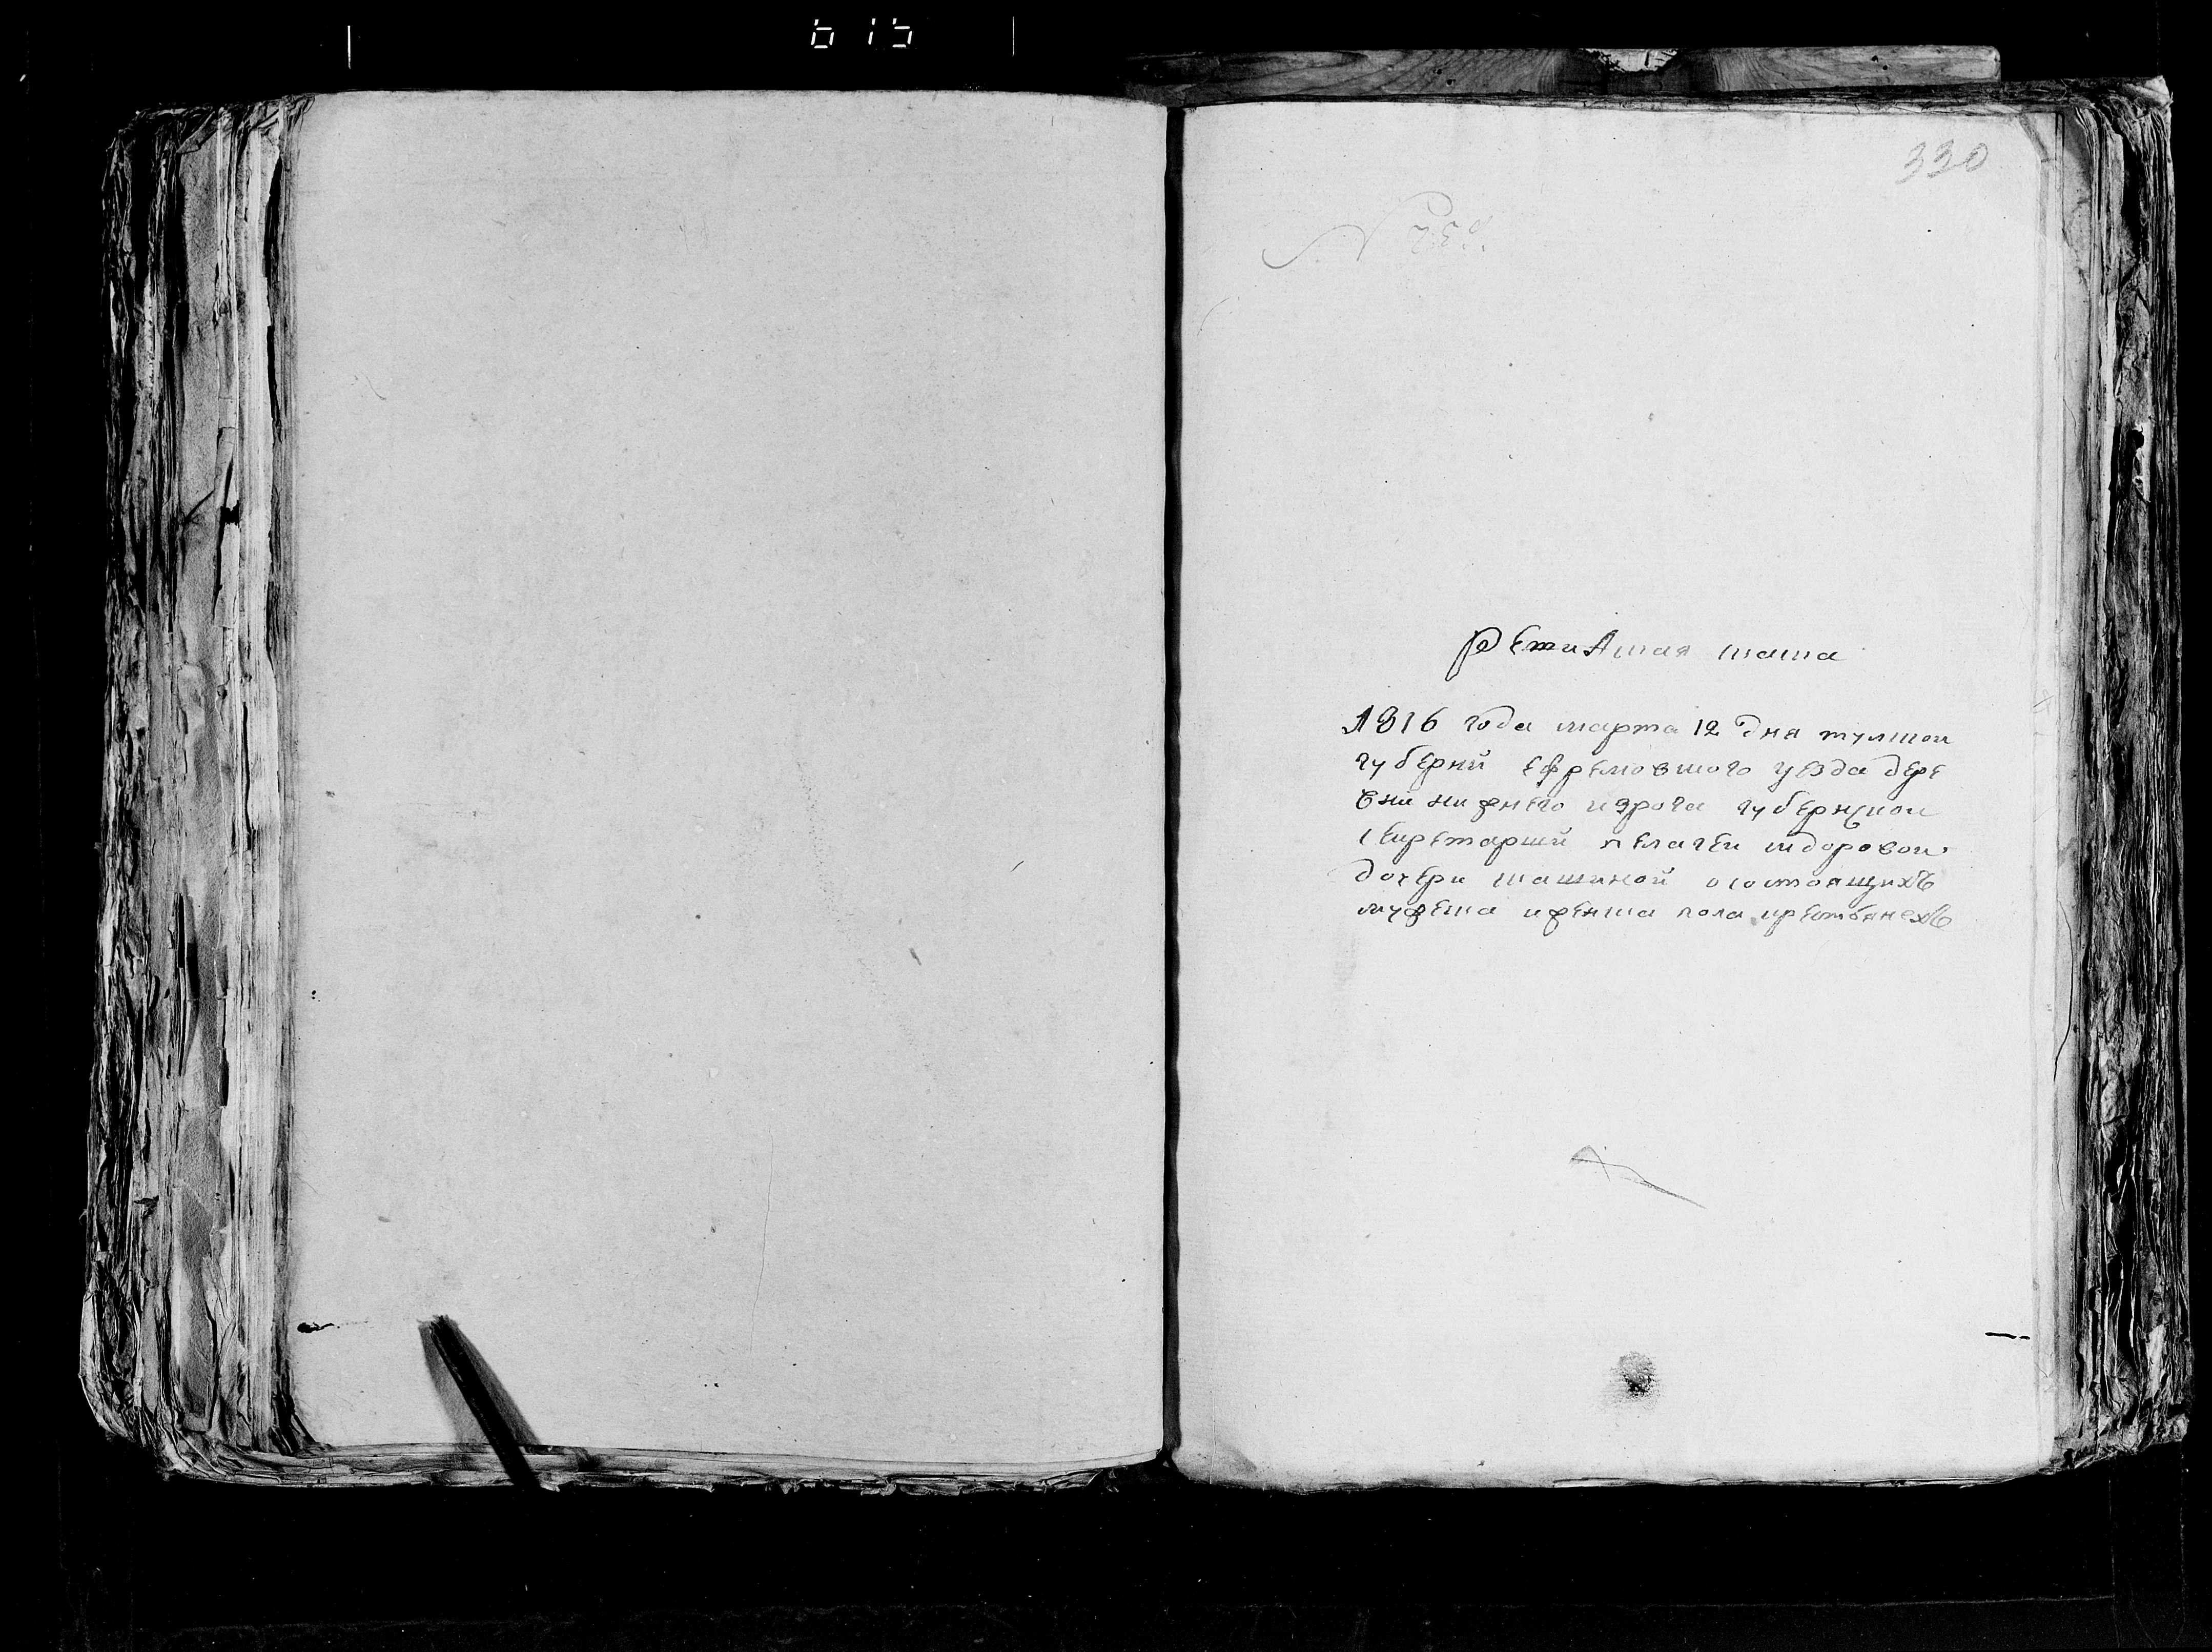 615
330
№
Ревизская скаска
1816 года марта 12 дня тулской
губернӥ ефремовского уезда дере
вни нижнего изрога губернской
секретаршӥ пелагеи ѳдоровой
дочери шашиной осостоящихъ
мужеска иженска пола крестьянехъ